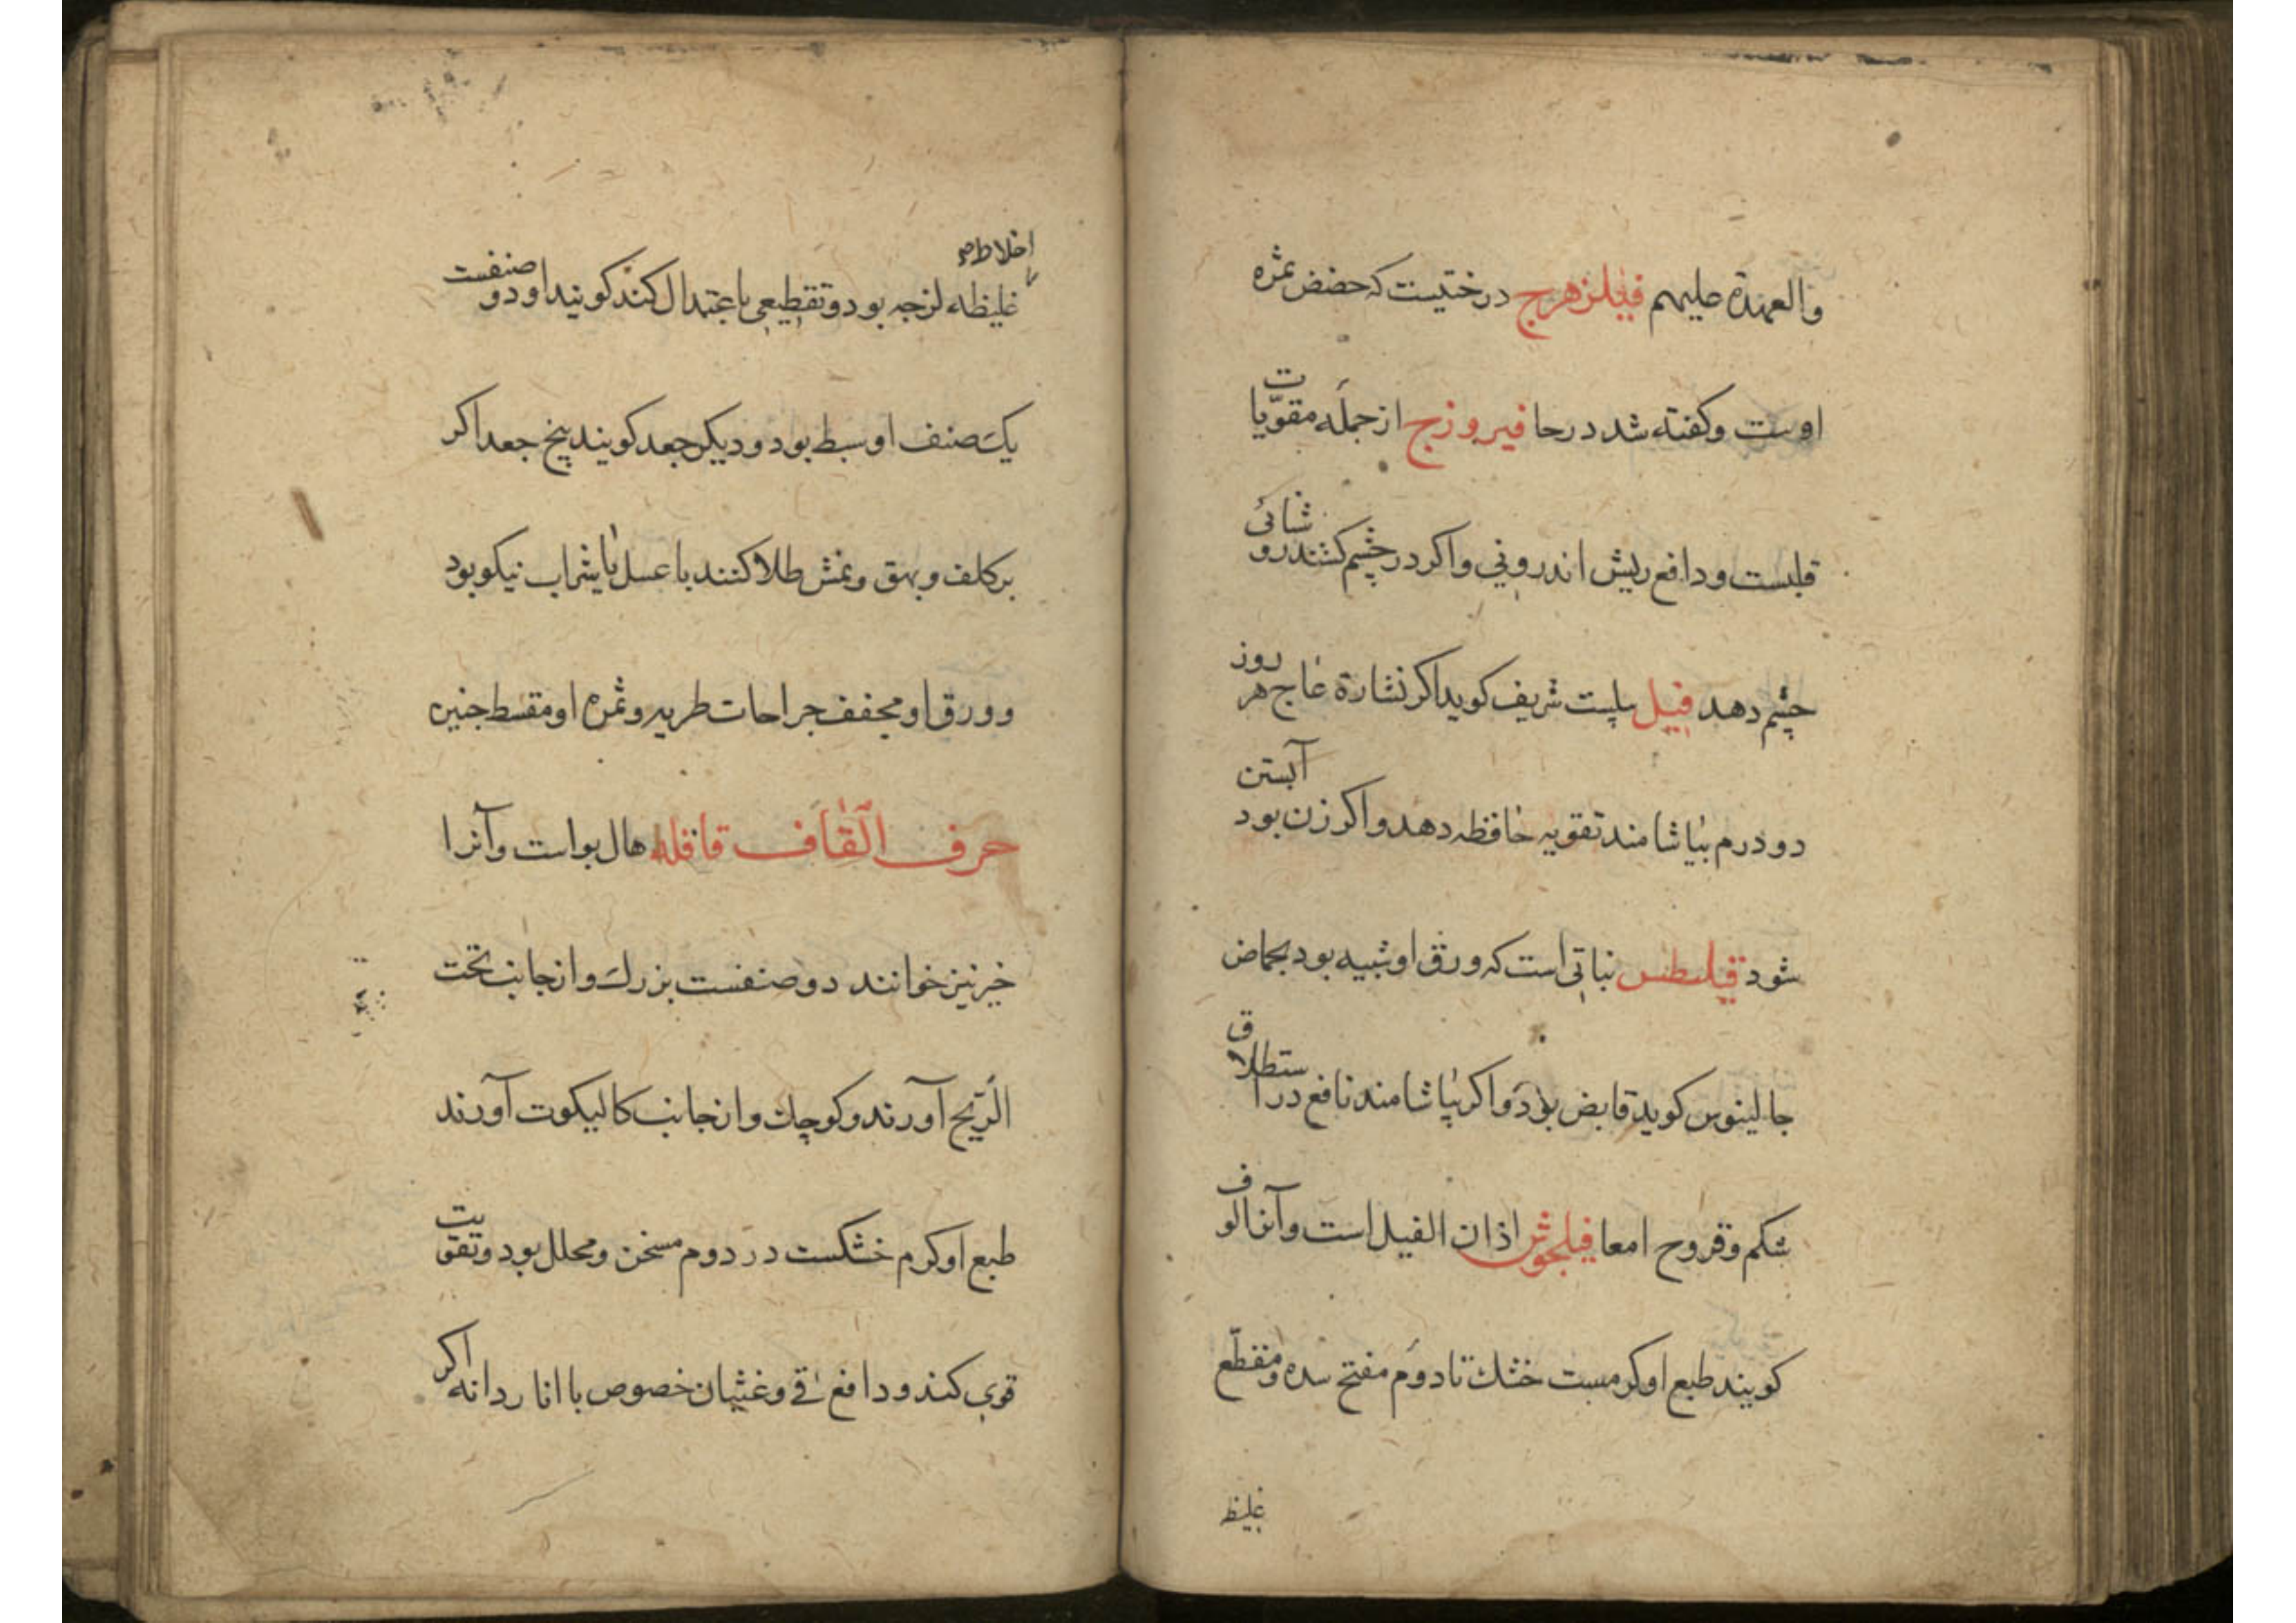 والعهدة علیهم فیلزهرج درختیست که حضض ثمره
اوست وکفته شد درحا فیروزج ازجمله مقوّیات
قلبست ودافع ریش اندرونی واکر درچشم کشند روشنائی
چشم دهد فیل پیلست شریف کوید اکر نشارة عاج هر روز
دودرم بیاشامند تقویه حافظه دهد واکر زن بود آبستن
شود فیلسطس نباتی است که ورق او شبیه بود بحماض
جالینوس کوید قابض بود واکر بیاشامند نافع در استطلاق
شکم وقروح امعا فیلجوش اذان الفیل است وآنرا لوف
کویند طبع او کرمست خشک تا دوم مفتح سده ومقطّع
غلیظ
اخلاط صح
غلیظه لزجه بود وتقطیعی باعتدال کند کویند او دو صنفست
یک صنف او سبط بود ودیکر جعد کویند بیخ جعد اکر
برکلف وبهق ونمش طلا کنند با عسل یا شراب نیکو بود
وورق او مجفف جراحات طریه وثمره او مقسط جنین
حرف القاف قاقله هال بواست وآنرا
خیر نیز خوانند دو صنفست بزرک وازجانب تخت
الرّیح آورند وکوچک وازجانب کالیکوت آورند
طبع او کرم خشکست در دوم مسخن ومحلل بود وتقویت
قوی کند ودافع قی وغثیان خصوص با انار دانه اکر